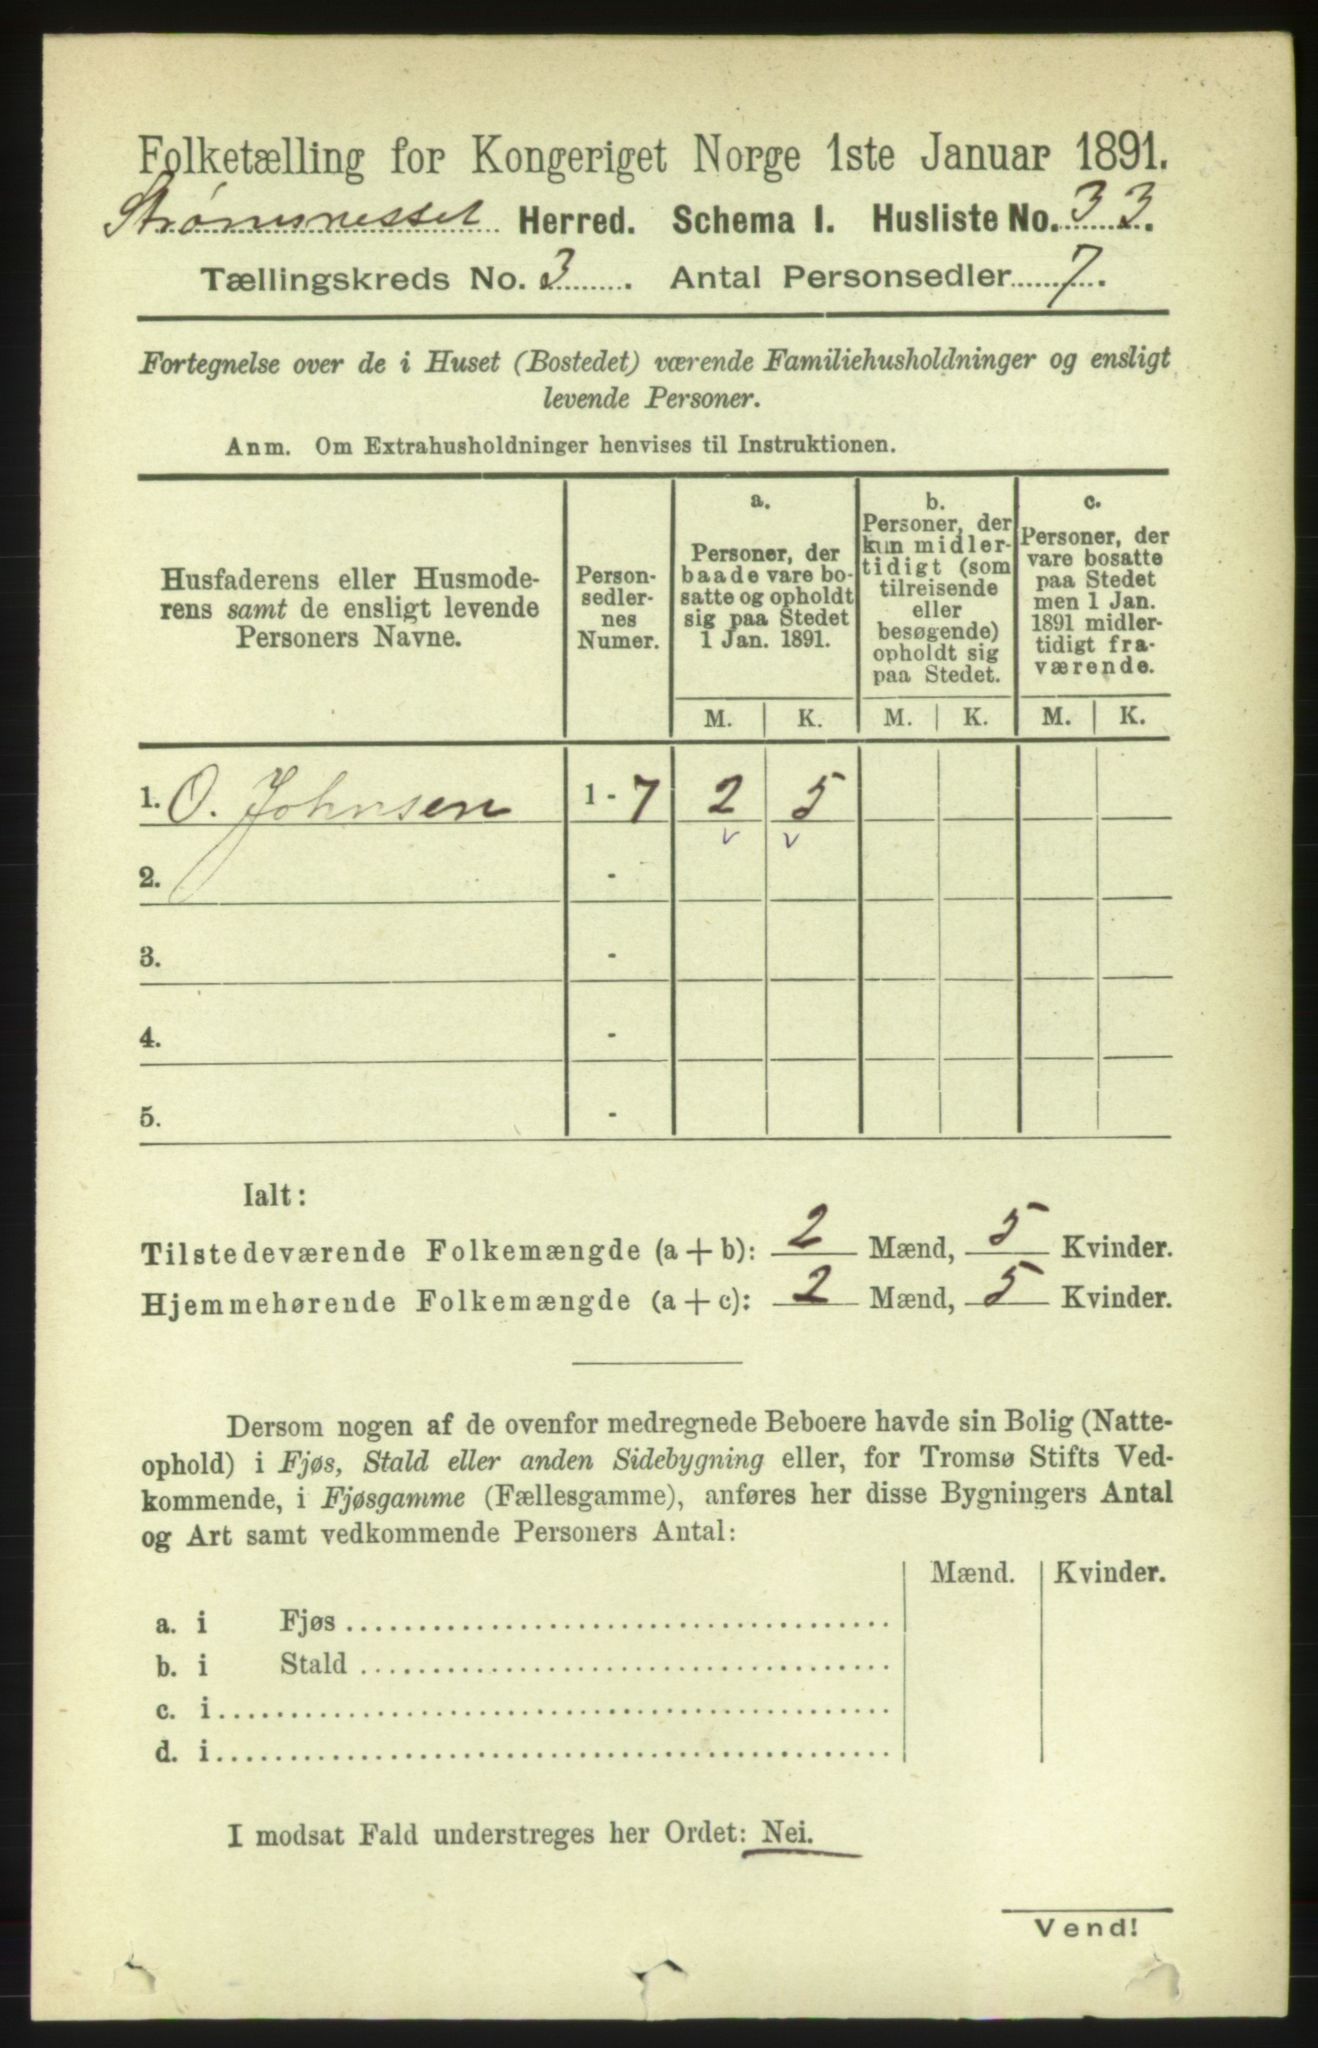 Folketælling for Kongeriget Norge 1ste Januar 1891.
Strømsnesset Herred. Schema I. Husliste No. 33.
Tællingskreds No. 3. Antal Personsedler 7.
Fortegnelse over de i Huset (Bostedet) værende Familiehusholdninger og ensligt
levende Personer.
Anm. Om Extrahusholdninger henvises til Instruktionen.
Husfaderens eller Husmode-
rens samt de ensligt levende
Personers Navne.
Person-
sedler-
nes
Numer.
a.
Personer, der
baade vare bo-
satte og opholdt
sig paa Stedet
1 Jan. 1891.
b.
Personer, der
kun midler-
tidigt (som
tilreisende
eller
besøgende)
opholdt sig
paa Stedet.
c.
Personer, der
vare bosatte
paa Stedet
men 1 Jan.
1891 midler-
tidigt fra-
værende.
M. K. M. K. M. K.
1. O. Johnsen 1 - 7 2 5
v v
2. -
3. -
4. -
5. -
Ialt:
Tilstedeværende Folkemængde (a + b): 2 Mænd, 5 Kvinder.
Hjemmehørende Folkemængde (a + c): 2 Mænd, 5 Kvinder.
Dersom nogen af de ovenfor medregnede Beboere havde sin Bolig (Natte-
ophold) i Fjøs, Stald eller anden Sidebygning eller, for Tromsø Stifts Ved-
kommende, i Fjøsgamme (Fællesgamme), anføres her disse Bygningers Antal
og Art samt vedkommende Personers Antal:
Mænd. Kvinder.
a. i Fjøs
b. i Stald
c. i
d. i
I modsat Fald understreges her Ordet: Nei.
Vend!